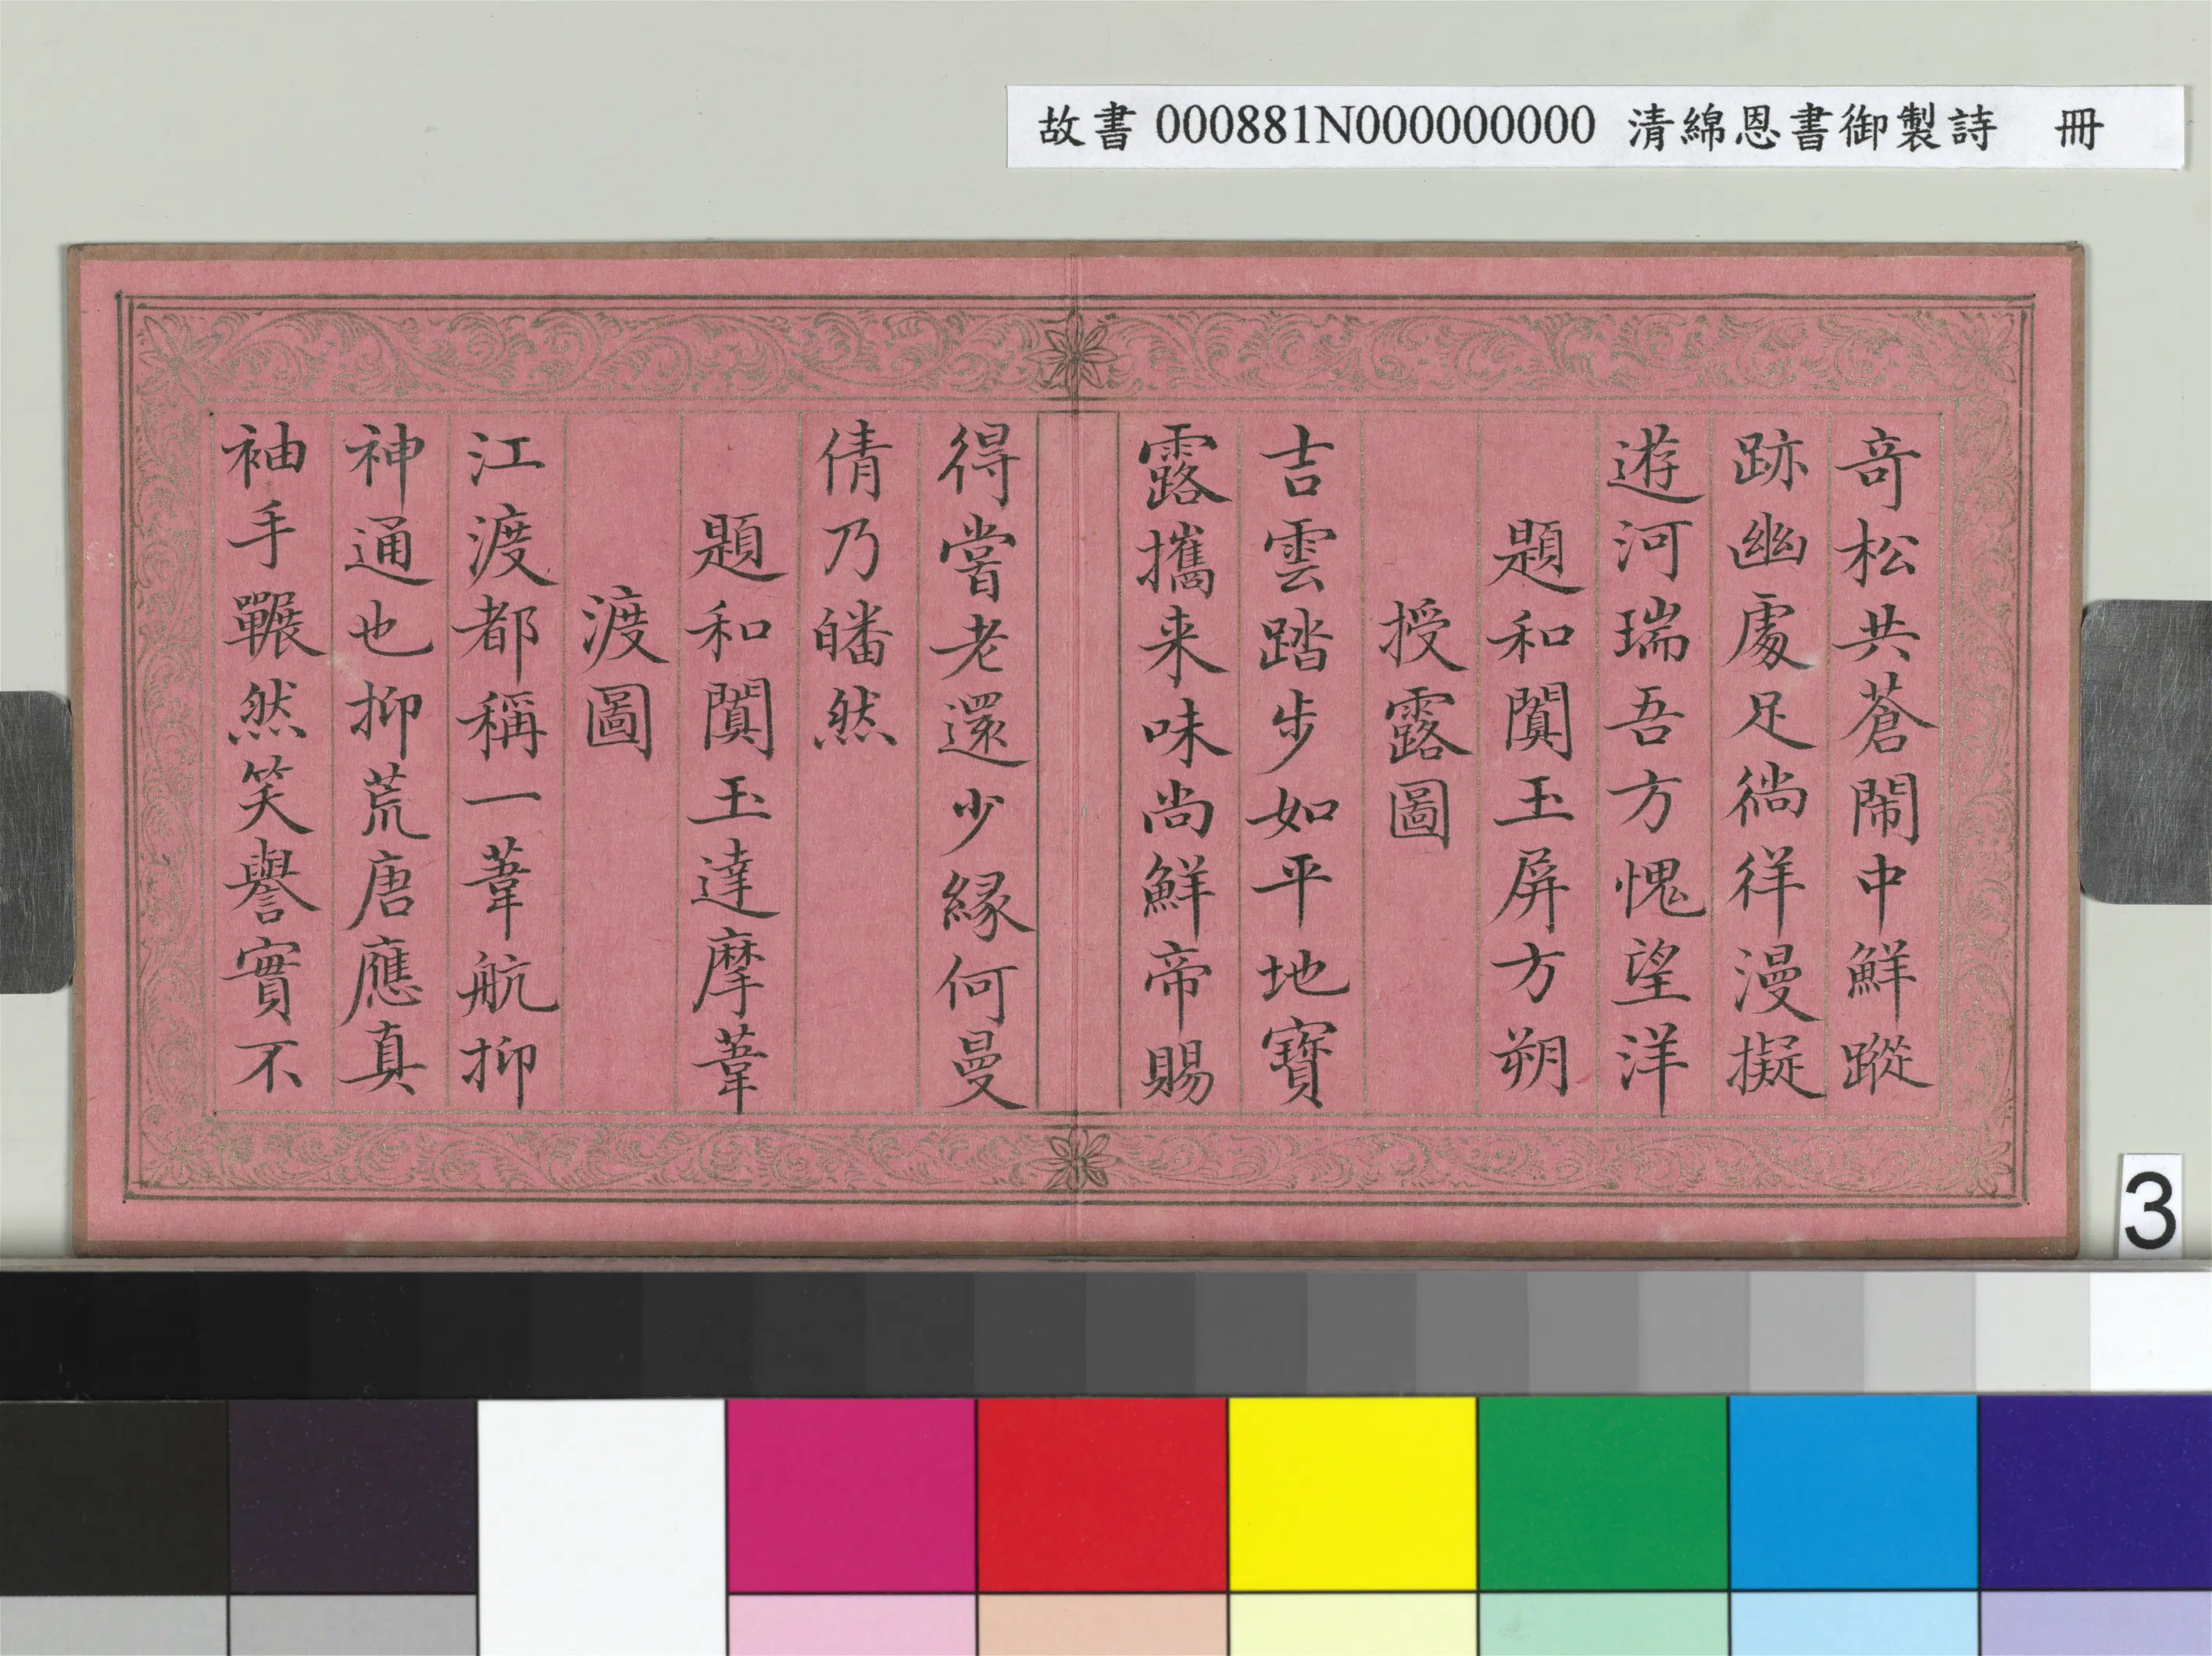 故書000881N000000000 清綿恩書御製詩 冊
竒松共蒼閙中鮮蹤
跡幽處足徜徉漫擬
遊河瑞吾方愧望洋
題和闐玉屏方朔
授露圖
吉雲踏步如平地寶
露攜来味尚鮮帝賜
得嘗老還少緣何曼
倩乃皤然
題和闐玉達摩葦
渡圖
江渡都稱一葦航抑
神通也抑荒唐應真
袖手囅然笑譽實不
3